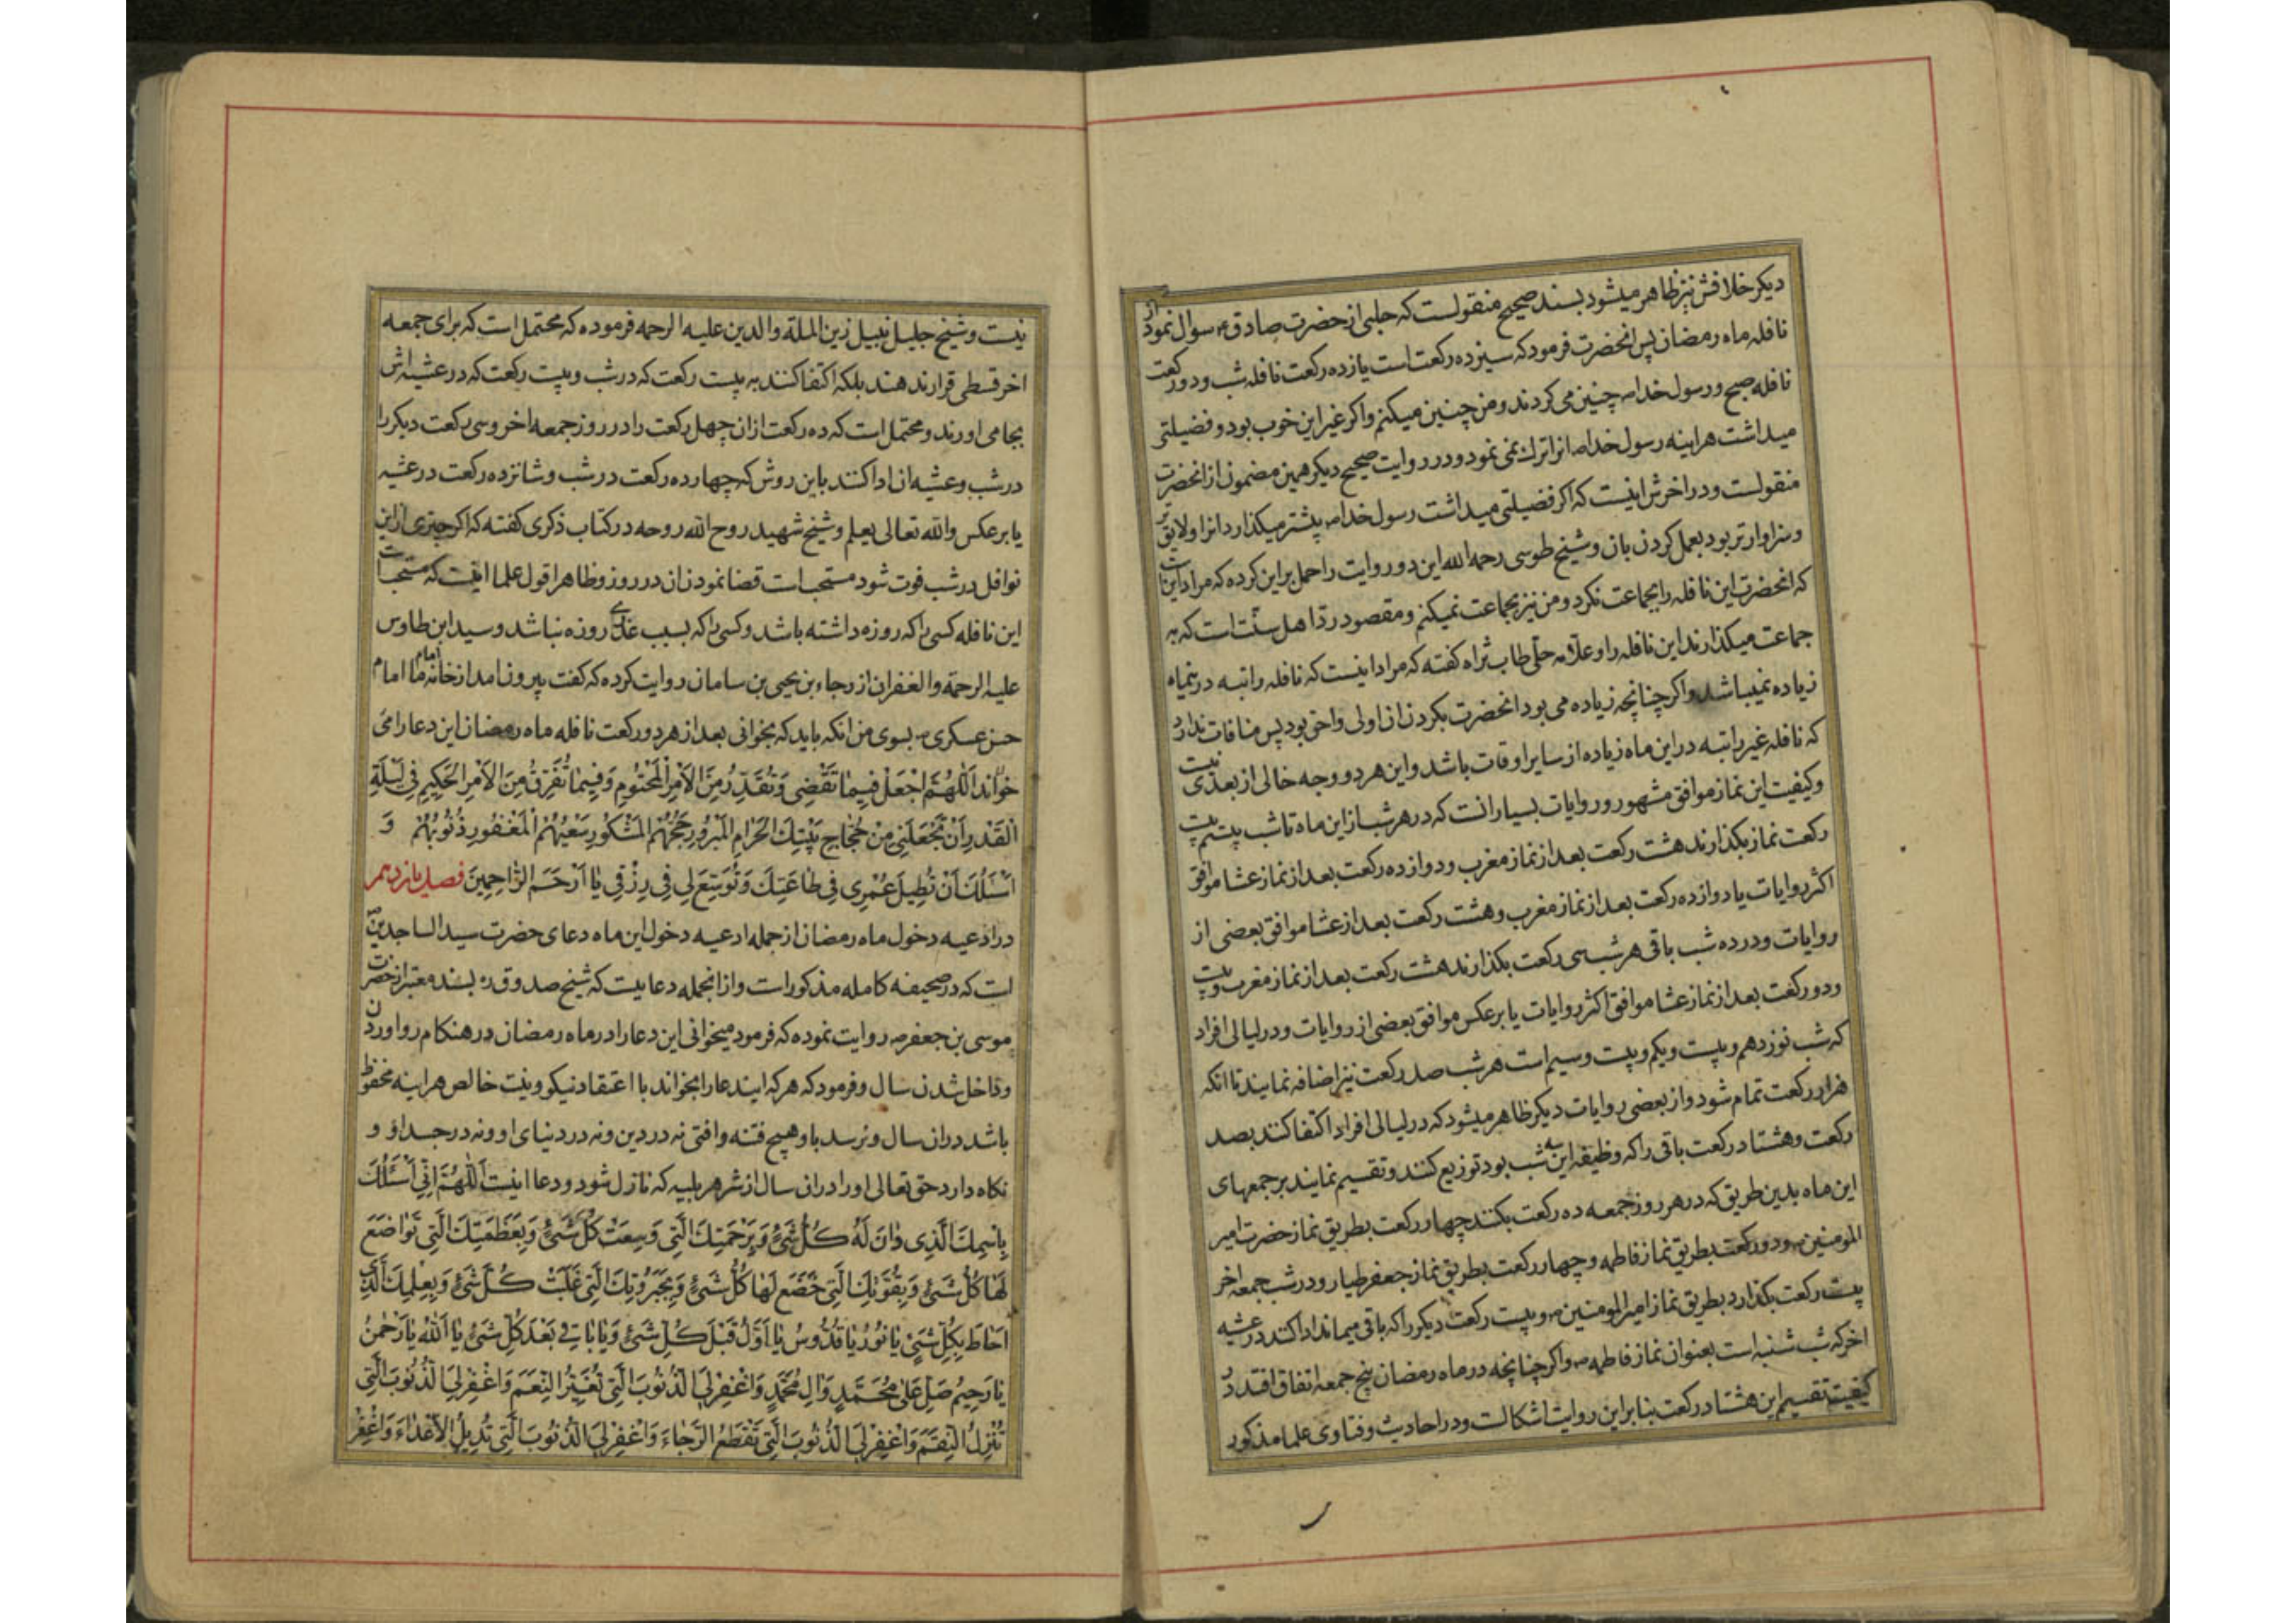 دیکر خلافش نیز ظاهر میشود بسند صحیح منقولست که حلبی از حضرت صادق ع سوال نمود از
نافله ماه رمضان پس انحضرت فرمود که سیزده رکعت است یازده رکعت نافله شب و دو رکعت
نافله صبح و رسول خدا ص چنین می کردند و من چنین میکنم و اکر غیر این خوب بود و فضیلتی
میداشت هراینه رسول خدا ص انرا ترک نمی نمود و در روایت صحیح دیکر همین مضمون از انحضرت
منقولست و در اخرش اینست که اکر فضیلتی میداشت رسول خدا ص پیشتر میکذارد انرا و لایق تر
و سزاوارتر بود بعمل کردن بان و شیخ طوسی رحمه الله این دو روایت را حمل بر این کرده که مراد اینست
که انحضرت این نافله را بجماعت نکرد و من نیز بجماعت نمیکنم و مقصود رد اهل سنت است که به
جماعت میکذارند این نافله را و علامه حلی طاب ثراه کفته که مراد اینست که نافله راتبه در ینماه
زیاده نمیباشد و اکر چنانچه زیاده می بود انحضرت بکردن ان اولی و احق بود پس منافات ندارد
که نافله غیر راتبه در این ماه زیاده از سایر اوقات باشد و این هر دو وجه خالی از بعدی نیست
و کیفیت این نماز موافق مشهور و روایات بسیار انت که در هر شب از این ماه تا شب بیستم بیست
رکعت نماز بکذارند هشت رکعت بعد از نماز مغرب و دوازده رکعت بعد از نماز عشا موافق
اکثر روایات یا دوازده رکعت بعد از نماز مغرب و هشت رکعت بعد از عشا موافق بعضی از
روایات و در ده شب باقی هر شب سی رکعت بکذارند هشت رکعت بعد از نماز مغرب و بیست
و دو رکعت بعد از نماز عشا موافق اکثر روایات یا بر عکس موافق بعضی از روایات و در لیالی افراد
که شب نوزدهم و بیست و یکم و بیست و سیم است هر شب صد رکعت نیز اضافه نمایند تا انکه
هزار رکعت تمام شود و از بعضی روایات دیکر ظاهر میشود که در لیالی افراد اکتفا کنند بصد
رکعت و هشتاد رکعت باقی را که وظیفه این سه شب بود توزیع کنند و تقسیم نمایند بر جمعهای
این ماه بدین طریق که در هر روز جمعه ده رکعت بکنند چهار رکعت بطریق نماز حضرت امیر
المومنین ع و دو رکعت بطریق نماز فاطمه و چهار رکعت بطریق نماز جعفر طیار و در شب جمعه اخر
بیست رکعت بکذارد بطریق نماز امیر المومنین ع و بیست رکعت دیکر را که باقی میماند ادا کند در عشیه
اخر که شب شنبه است بعنوان نماز فاطمه ع و اکر چنانچه در ماه رمضان پنج جمعه اتفاق افتد در
کیفیت تقسیم این هشتاد رکعت بنا بر این روایت اشکالست و در احادیث و فتاوی علما مذکور
نیست و شیخ جلیل نبیل زین الملة والدین علیه الرحمه فرموده که محتمل است که برای جمعه
اخر قسطی قرار ندهند بلکه اکتفا کنند به بیست رکعت که در شب و بیست رکعت که در عشیه اش
بجا می اورند و محتمل است که ده رکعت از ان چهل رکعت را در روز جمعه اخر و سی رکعت دیکر را
در شب و عشیه ان ادا کنند باین روش که چهارده رکعت در شب و شانزده رکعت در عشیه
یا بر عکس والله تعالی یعلم و شیخ شهید روح الله روحه در کتاب ذکری کفته که اکر چیزی از این
نوافل در شب فوت شود مستحب است قضا نمودن ان در روز و ظاهر اقوال علما اینست که مستحب است
این نافله کسی را که روزه داشته باشد و کسی را که بسبب عذری روزه نباشد و سید ابن طاوس
علیه الرحمة والغفران از رجاء بن یحیی بن سامان روایت کرده که کفت بیرون امد از خانه ما امام امام
حسن عسکری ع بسوی من انکه باید که بخوانی بعد از هر دو رکعت نافله ماه رمضان این دعا را می
خواند اَللّهُمَّ اجْعَلْ فیما تَقْضی وَتُقَدِّرُ مِنَ الاَمْرِ الْمَحْتُومِ وَفیما تَفْرُقُ مِنَ الاَمْرِ الْحَکیمِ فی لَیْلَةِ
الْقَدْرِ اَنْ تَجْعَلَنی مِنْ حُجّاجِ بَیْتِکَ الْحَرامِ الْمَبْرُورِ حَجُّهُمُ الْمَشْکُورِ سَعْیُهُمُ الْمَغْفُورِ ذُنُوبُهُمْ وَ
اَسْئَلُکَ اَنْ تُطیلَ عُمْری فی طاعَتِکَ وَتُوَسِّعَ لی فی رِزْقی یا اَرْحَمَ الرّاحِمینَ فصل یازدهم
در ادعیه دخول ماه رمضان از جمله ادعیه دخول این ماه دعای حضرت سید الساجدین ص
است که در صحیفه کامله مذکور است و از انجمله دعاییست که شیخ صدوق ره بسند معتبر از حضرت
موسی بن جعفر ص روایت نموده که فرمود میخوانی این دعا را در ماه رمضان در هنکام رو اوردن
و داخل شدن سال و فرمود که هر که ایندعا را بخواند با اعتقاد نیکو و نیت خالص هراینه محفوظ
باشد در ان سال و نرسد باو هیچ فتنه و افتی نه در دین و نه در دنیای او و نه در جسد او و
نکاه دارد حق تعالی او را در ان سال از شر هر بلیه که نازل شود و دعا اینست اَللّهُمَّ اِنّی اَسْئَلُکَ
بِاسْمِکَ الَّذی دانَ لَهُ کُلُّ شَیْءٍ وَبِرَحْمَتِکَ الَّتی وَسِعَتْ کُلَّ شَیْءٍ وَبِعَظَمَتِکَ الَّتی تَواضَعَ
لَها کُلُّ شَیْءٍ وَبِقُوَّتِکَ الَّتی خَضَعَ لَها کُلُّ شَیْءٍ وَبِجَبَرُوتِکَ الَّتی غَلَبَتْ کُلَّ شَیْءٍ وَبِعِلْمِکَ الَّذی
اَحاطَ بِکُلِّ شَیْءٍ یا نُورُ یا قُدُّوسُ یا اَوَّلُ قَبْلَ کُلِّ شَیْءٍ وَیا باقی بَعْدَ کُلِّ شَیْءٍ یا اَللهُ یا رَحْمنُ
یا رَحیمُ صَلِّ عَلی مُحَمَّدٍ وَالِ مُحَمَّدٍ وَاغْفِرْ لِیَ الذُّنُوبَ الَّتی تُغَیِّرُ النِّعَمَ وَاغْفِرْ لِیَ الذُّنُوبَ الَّتی
تُنْزِلُ النِّقَمَ وَاغْفِرْ لِیَ الذُّنُوبَ الَّتی تَقْطَعُ الرَّجاءَ وَاغْفِرْ لِیَ الذُّنُوبَ الَّتی تُدیلُ الاَعْداءَ وَاغْفِرْ